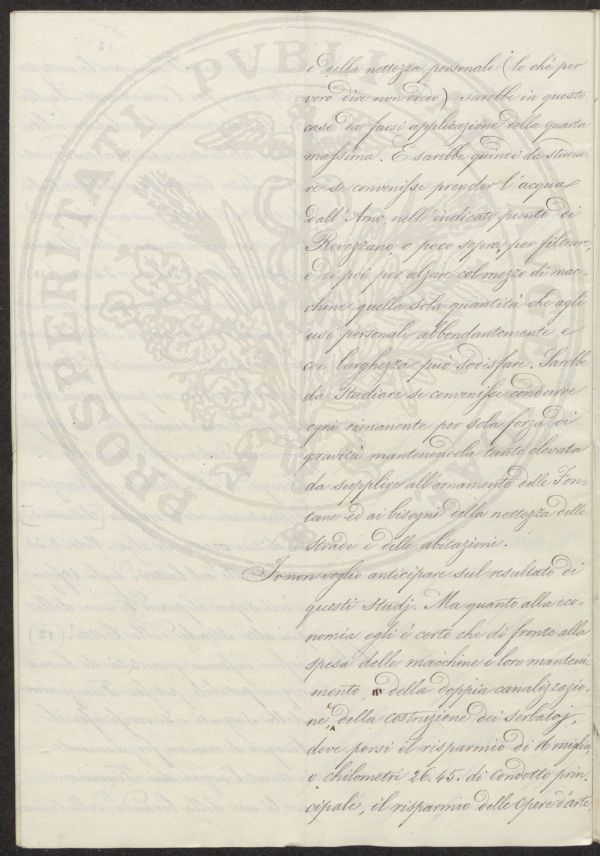 e della nettezza personale (lo chè per
vero dire non credo) sarebbe in questo
caso da farsi applicazione della quarta
massima. E sarebbe quindi da stuma-
re se convenisse prender l'acqua
dall'Arno, nell'indicato punto di
Rovezzano, o poco sopra, per filtrare,
e di poi per alzare col mezzo di mac-
chine quella sola quantità che agli
usi personali abbondantemente e
con larghezza può sodisfare. Sarebbe
da Studiare se convenisse condurre
ogni rimanente per sola forza di
gravità mantenendola tanto elevata
da supplire all'ornamento delle Fon-
tane ed ai bisogni della nettezza delle
strade e delle abitazioni.
Io non voglio anticipare sul resultato di
questi Studj. Ma quanto alla eco-
nomia egli è certo che di fronte alla
spesa delle macchine e loro manteni-
mento e della doppia canalizzazio-
ne e della costruzione dei serbatoj,
deve porsi il risparmio di 16 miglia,
o chilometri 26.45. di Condotto prin-
cipale, il risparmio delle Opere d'arte
PROSPERITATI PVBLICAE